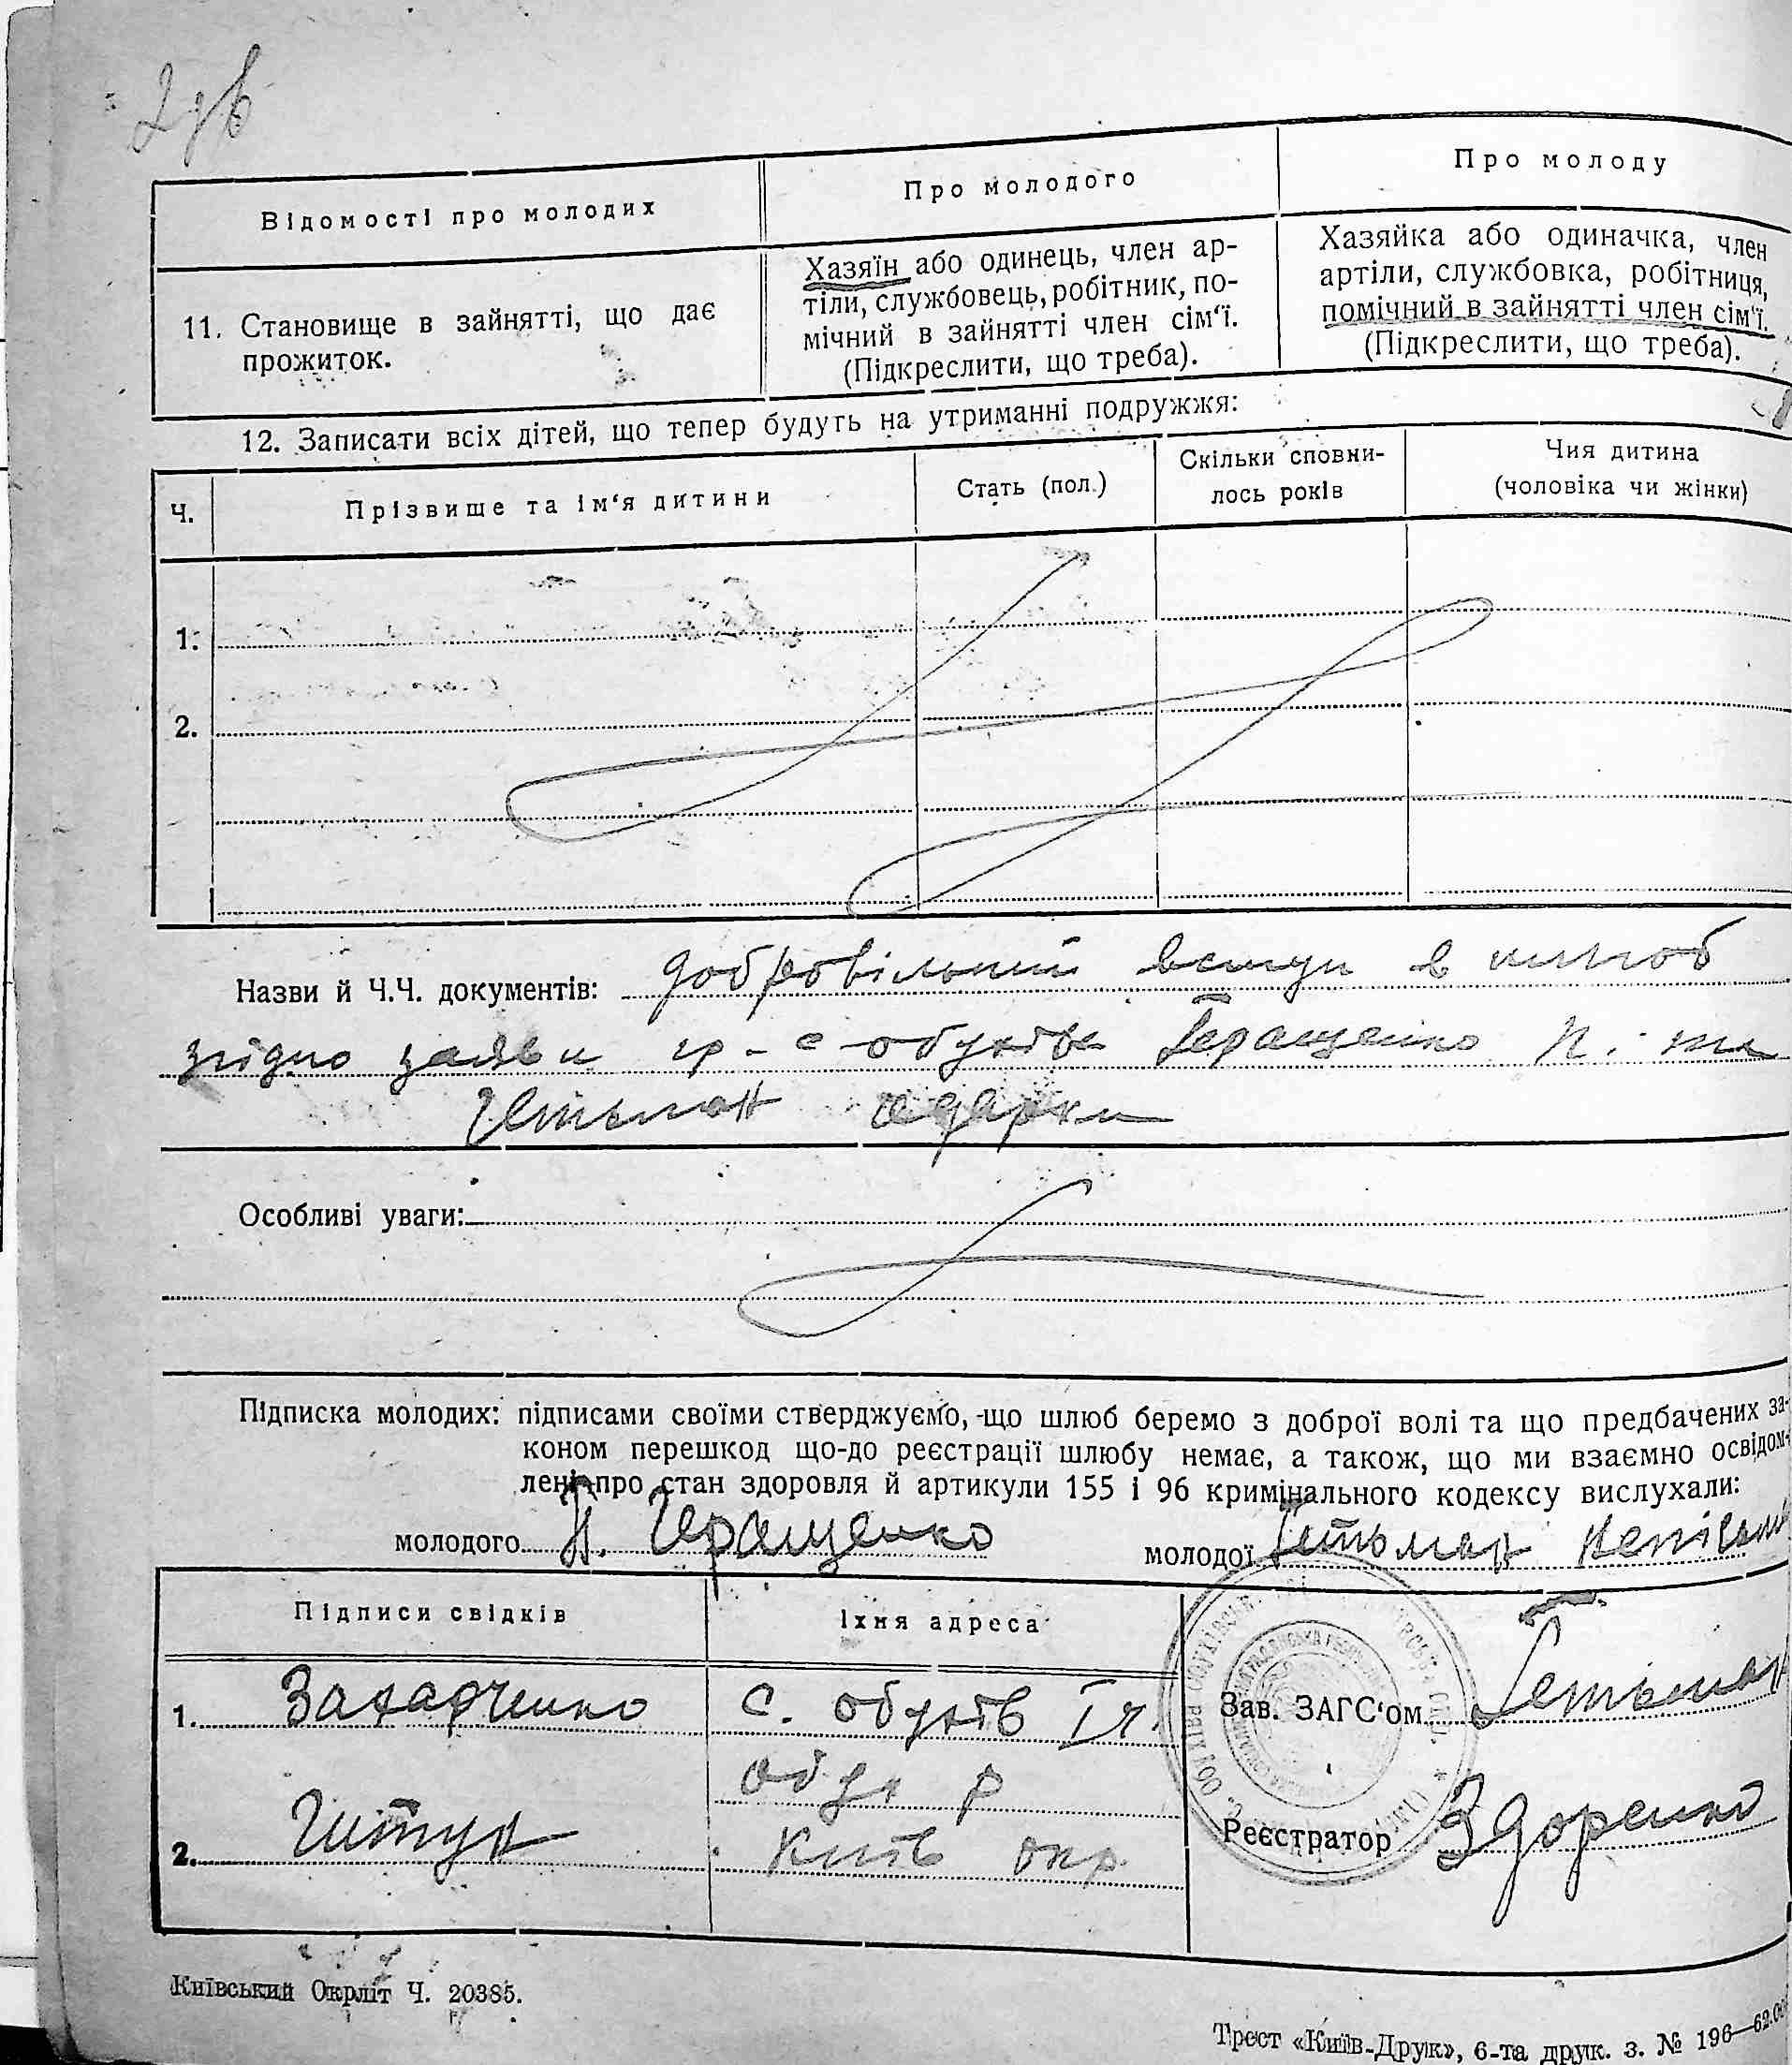 Відомості про молодих
Про молодого
Про молоду
11. Становище в зайнятті, що дає
прожиток.
Хазяїн або одинець, член ар-
тіли, службовець, робітник, по-
мічний в зайнятті член сім‘ї.
(Підкреслити, що треба).
Хазяйка або одиначка, член
артіли, службовка, робітниця,
помічний в зайнятті член сім‘ї.
(Підкреслити, що треба).
12. Записати всіх дітей, що тепер будуть на утриманні подружжя:
Ч.
Прізвище та ім‘я дитини
Стать (пол.)
Скільки сповни-
лось років
Чия дитина
(чоловіка чи жінки)
1.
2.
Назви й Ч.Ч. документів: добровільний вступ в шлюб
згідно заяви гр- с Обухів Геращенко П. та
Гетьман Одарки
Особливі уваги:
Підписка молодих: підписами своїми стверджуємо, що шлюб беремо з доброї волі та що предбачених за-
коном перешкод що-до реєстрації шлюбу немає, а також, що ми взаємно освідом-
лені про стан здоровля й артикули 155 і 96 кримінального кодексу вислухали:
молодого П. Геращенко
молодої Гетьман
Підписи свідків
Їхня адреса
1. Захарченко
с. Обухів І ч.
Обух р
2.
Київ окр.
Зав. ЗАГС‘ом Гетьман
Реєстратор Здоренко
Київський Окрліт Ч. 20385.
Трест «Київ-Друк», 6-та друк. з. № 196—62.0